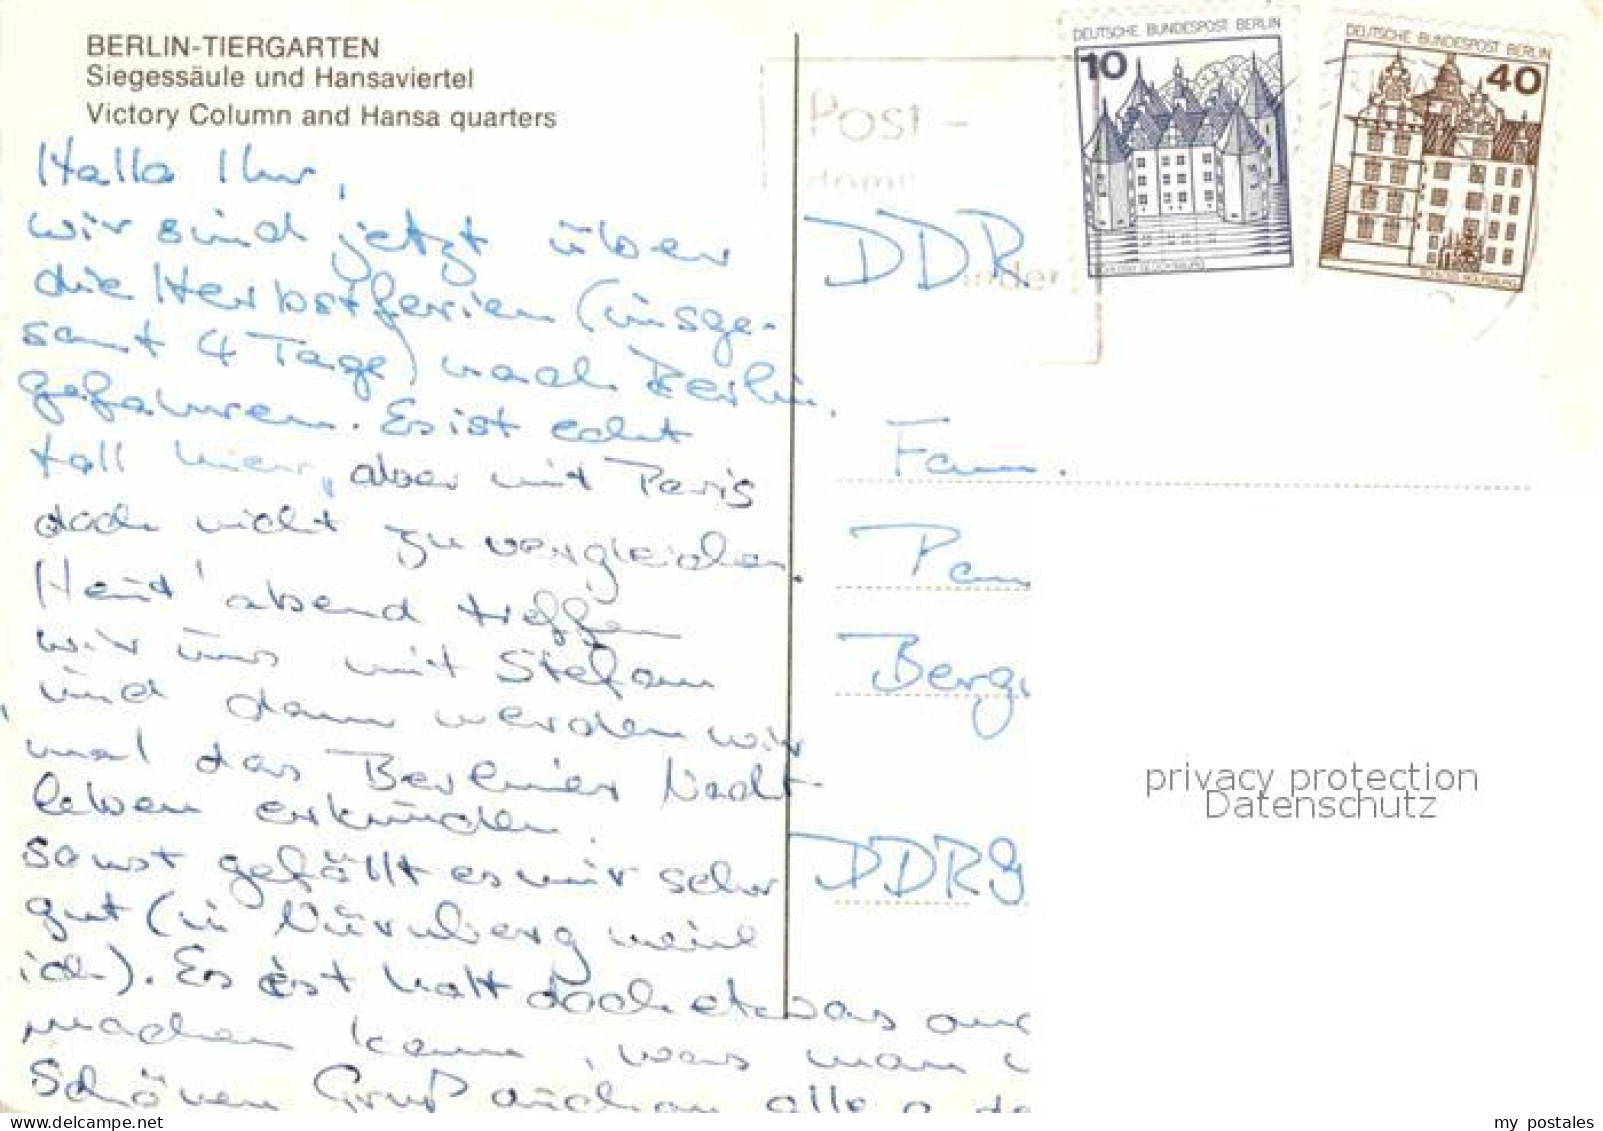 BERLIN-TIERGARTEN
Siegessäule und Hansaviertel
Victory Column and Hansa quarters
Hallo Ihr,
wir sind jetzt über
die Herbstferien (insge-
samt 4 Tage) nach Berlin
gefahren. Es ist echt
toll hier, aber mit Paris
doch nicht zu vergleichen.
Heut' abend treffen
wir uns mit Stefan
und dann werden wir
mal das Berliner Nacht-
leben erkunden.
Sonst gefällt es mir sehr
gut (in Nürnberg meine
ich). Es ist halt doch etwas
machen kann, was man
Schönen Gruß auch an alle
DEUTSCHE BUNDESPOST BERLIN
10
SCHLOSS GLÜCKSBURG
DEUTSCHE BUNDESPOST BERLIN
40
SCHLOSS WOLFSBURG
Post-
DDR
Fam.
DDR
privacy protection
Datenschutz
www.delcampe.net
my_postales